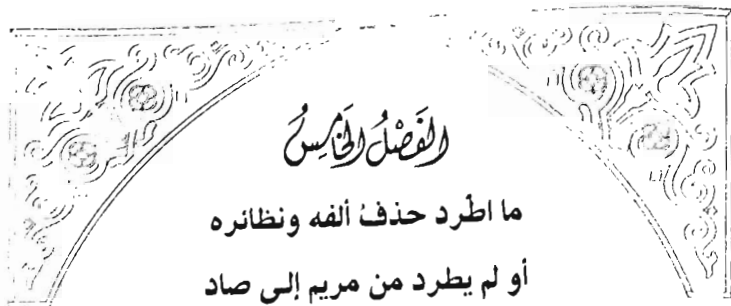 الفَصْلُ الخَامِسُ
ما اطّرد حذفُ ألفه ونظائره
أو لم يطرد من مريم إلى صاد